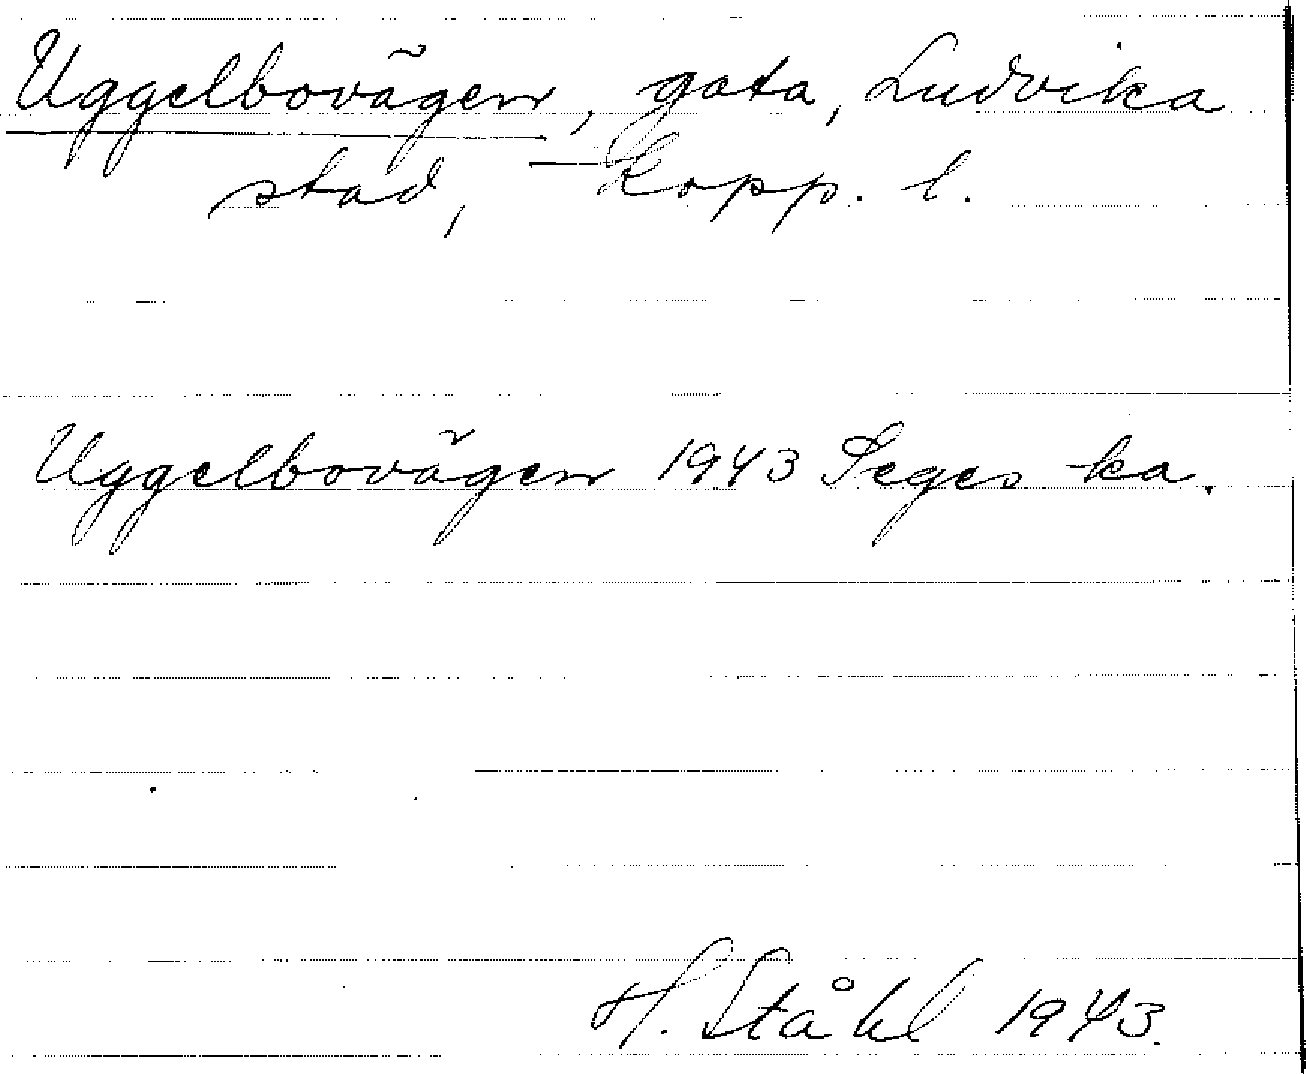 Uggelbovägen, gata, Ludvika
stad, Kopp. l.
Uggelbovägen 1943 Seges ka.
H. Ståhl 1943.